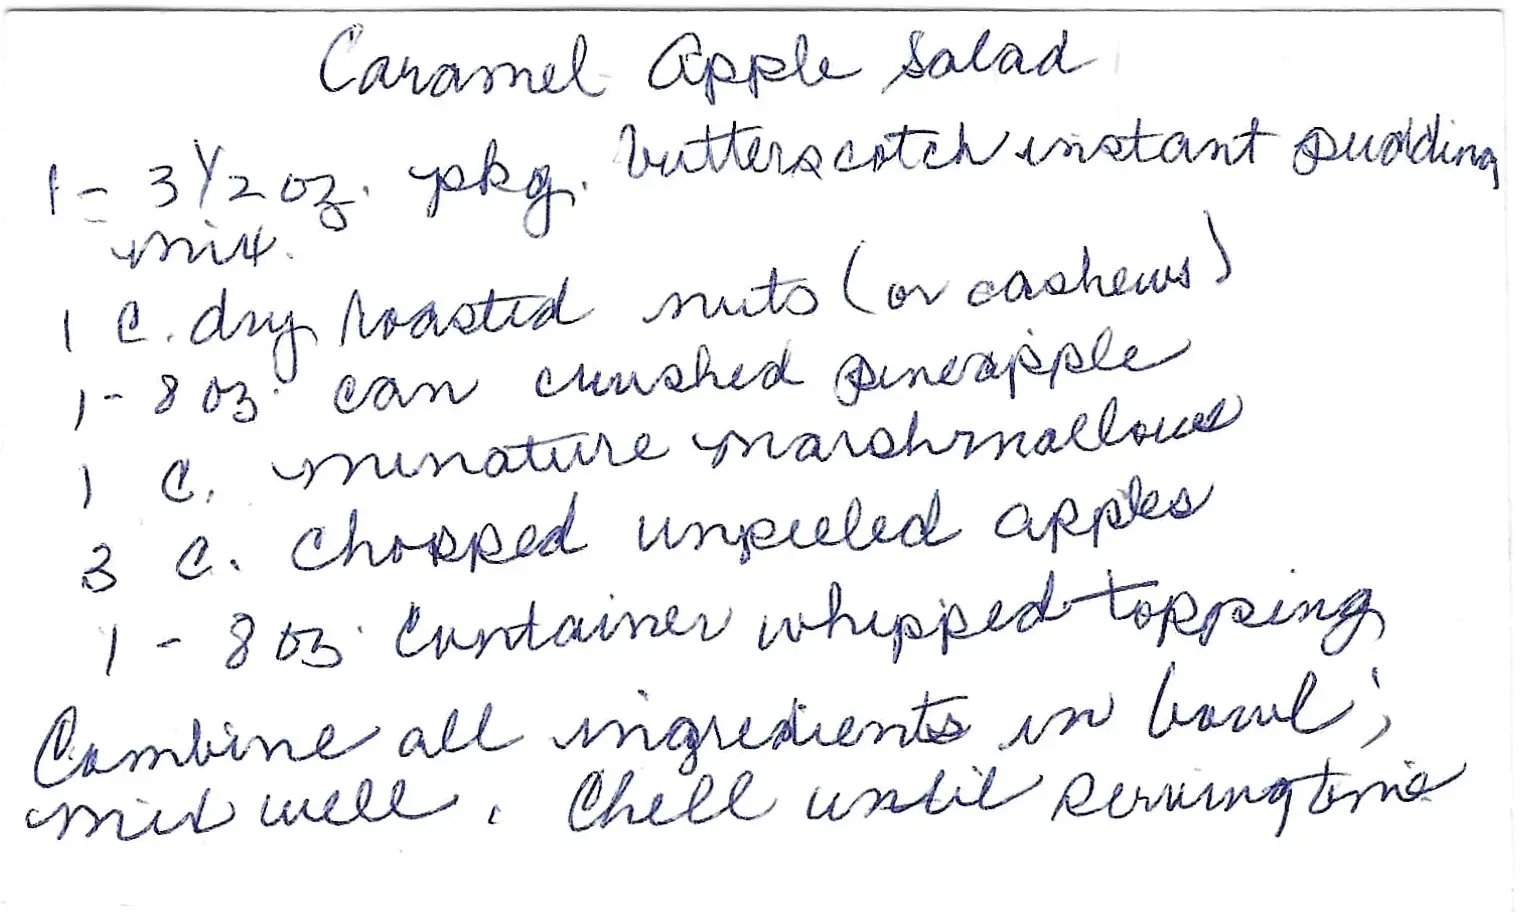 Caramel Apple Salad
1 - 3 1/2 oz. pkg. butterscotch instant pudding
mix.
1 C. dry roasted nuts (or cashews)
1 - 8 oz. can crushed pineapple
1 C. minature marshmallows
3 C. chopped unpeeled apples
1 - 8 oz. container whipped topping
Combine all ingredients in bowl;
mix well. Chill until serving time